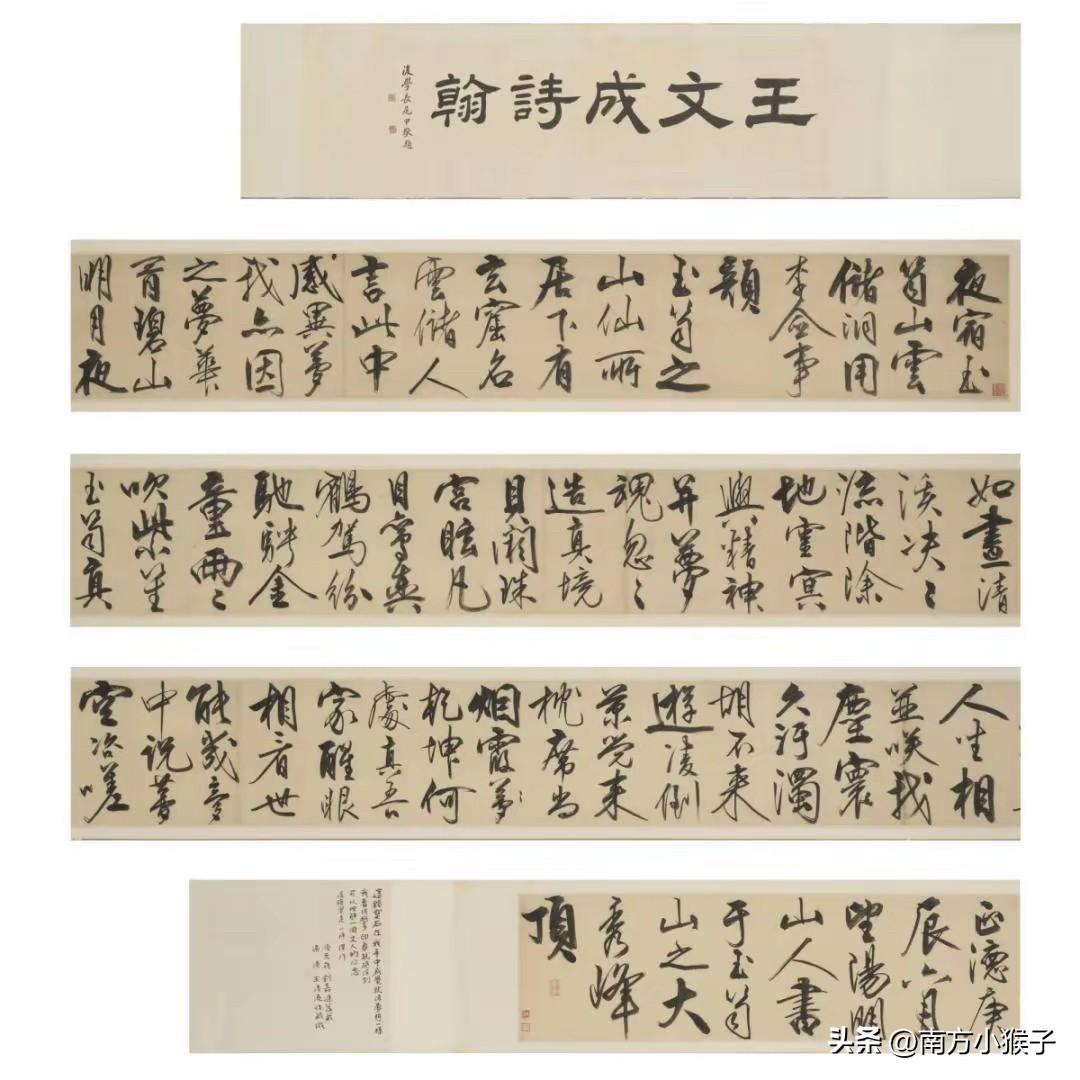 王文成詩翰
後學長尾甲敬題
夜宿玉
笥山雲
儲洞用
李僉事
韻
玉笥之
山仙所
居下有
玄窟名
雲儲人
言此中
感異夢
我亦因
之夢華
胥碧山
明月夜
如晝清
溪泱〻
流階除
地靈冥
與精神
并夢
魂忽〻
造真境
貝闕珠
宮眩凡
目鸞輿
鶴駕紛
馳騁金
童兩〻
吹紫笙
玉笥真
人坐相
並咲我
塵寰
久污濁
胡不來
遊凌倒
景覺來
枕席尚
烟霞
乾坤何
處真吾
家醒眼
相看世
能幾夢
中說夢
空咨嗟
正德庚
辰六月
望陽明
山人書
于玉笥
山之大
秀峰
頂
头条 @南方小猴子